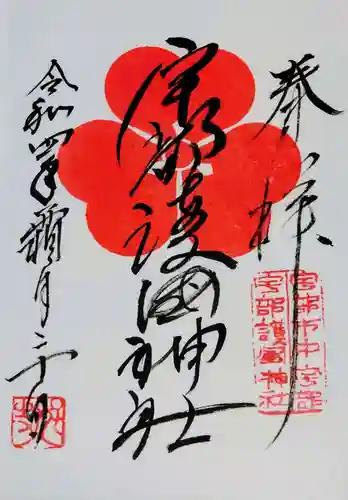 奉拝
宇部護國神社
令和四年霜月二十一日
宇部市中宇部
宇部護国神社